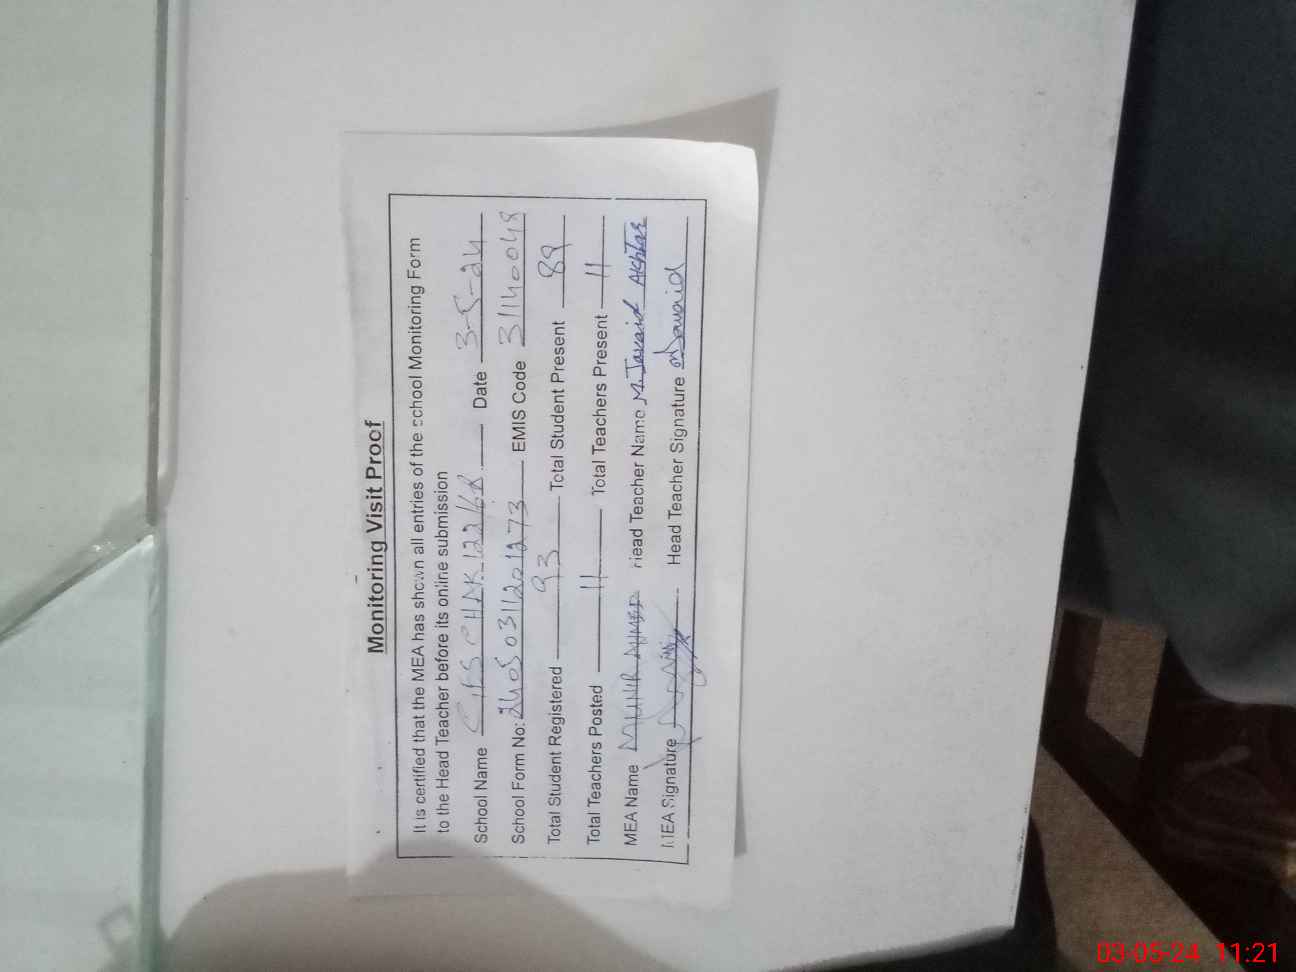 Monitoring Visit Proof
It is certified that the MEA has shown all entries of the school Monitoring Form
to the Head Teacher before its online submission
School Name CHAK 122/6R Date 3-5-24
School Form No: 24050311201273 EMIS Code 31140048
Total Student Registered 93 Total Student Present 89
Total Teachers Posted 11 Total Teachers Present 11
MEA Name MUNIR AHMED Head Teacher Name M. Javaid Akhtar
MEA Signature Head Teacher Signature Javaid
03-05-24 11:21